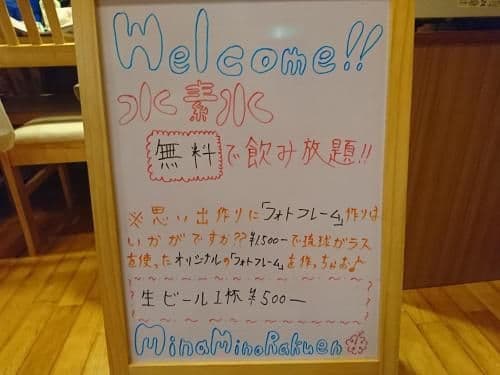 Welcome!!
水素水
無料で飲み放題!!
※思い出作りに「フォトフレーム」作りは
いかがですか??¥1,500ーで琉球ガラス
を使ったオリジナルの「フォトフレーム」を作っちゃお♪
生ビール1杯¥500ー
MinaMinoRakuen